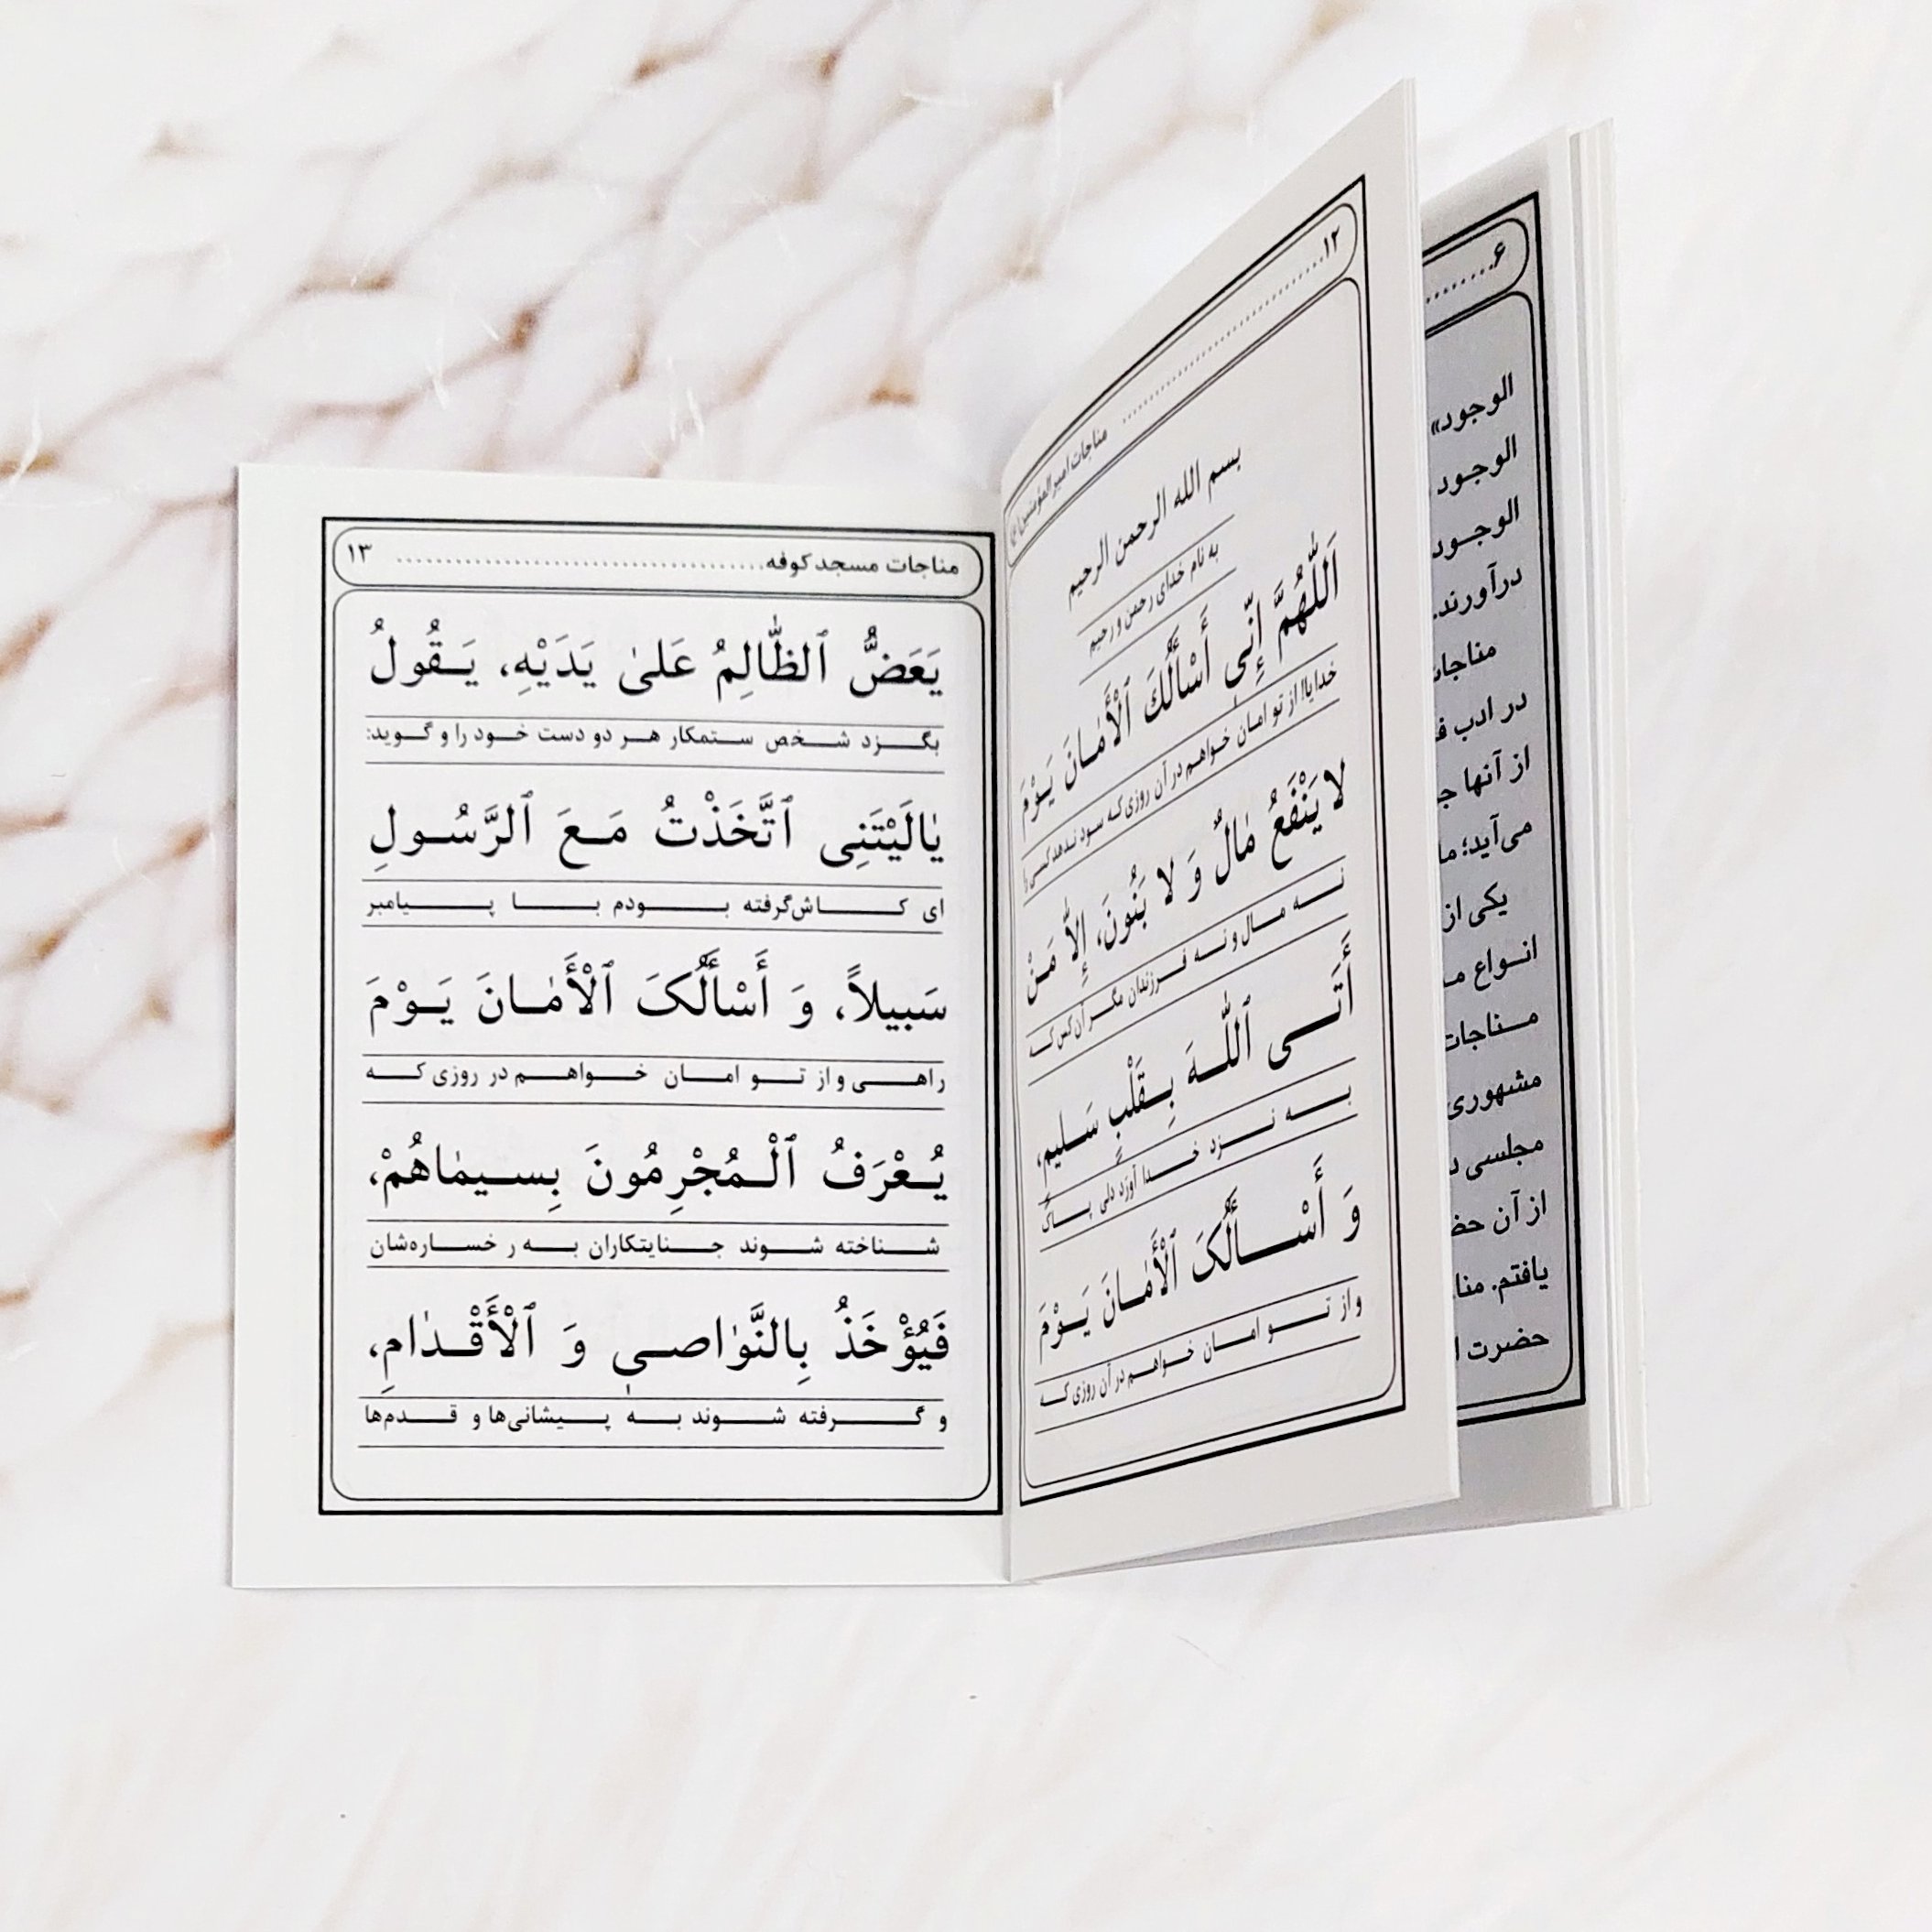 ۶
الوجود»
الوجود
الوجود
درآورند.
در ادب
از آنها
می‌آید؛
یکی از
انواع
مناجات
مشهوری
مجلسی
از آن
یافتم.
حضرت
مناجات امیرالمؤمنین ۱۲
بسم الله الرحمن الرحیم
به نام خدای رحمن و رحیم
اَللّٰهُمَّ إِنِّی أَسْأَلُكَ ٱلْأَمٰانَ یَوْمَ
خدایا! از تو امان خواهم در آن روزی که سود ندهد کسی را
لا یَنْفَعُ مٰالٌ وَ لا بَنُونَ، إِلاّٰ مَنْ
نه مال و نه فرزندان مگر آن کس که
أَتَی ٱللّٰهَ بِقَلْبٍ سَلیمٍ،
به نزد خدا آورَد دلی پاک
وَ أَسْأَلُکَ ٱلْأَمٰانَ یَوْمَ
و از تو امان خواهم در آن روزی که
مناجات مسجد کوفه ۱۳
یَعَضُّ ٱلظّٰالِمُ عَلیٰ یَدَیْهِ، یَقُولُ
بگزد شخص ستمکار هر دو دست خود را و گوید:
یٰالَیْتَنِی ٱتَّخَذْتُ مَعَ ٱلرَّسُولِ
ای کاش گرفته بودم با پیامبر
سَبیلاً، وَ أَسْأَلُکَ ٱلْأَمٰانَ یَوْمَ
راهی و از تو امان خواهم در روزی که
یُعْرَفُ ٱلْمُجْرِمُونَ بِسیمٰاهُمْ،
شناخته شوند جنایتکاران به رخساره‌شان
فَیُؤْخَذُ بِالنَّوٰاصیٖ وَ ٱلْأَقْدٰامِ،
و گرفته شوند به پیشانی‌ها و قدم‌ها